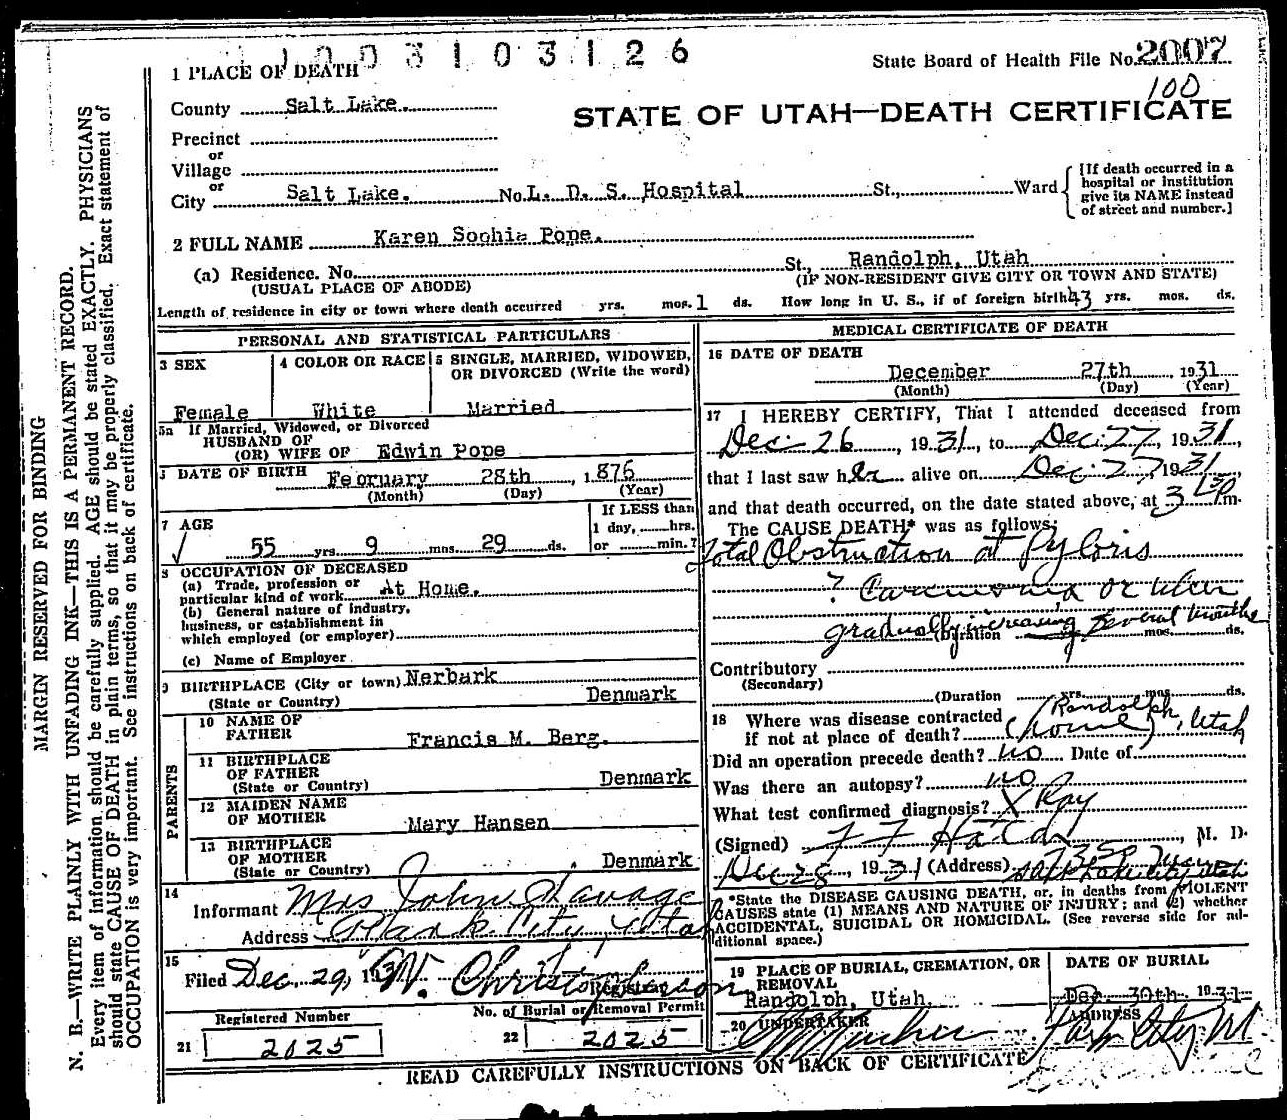 1003103126
State Board of Health File No. 2007
100
STATE OF UTAH—DEATH CERTIFICATE
1 PLACE OF DEATH
County Salt Lake.
Precinct
or
Village
or
City Salt Lake. No. L. D. S. Hospital St., Ward
[If death occurred in a hospital or institution give its NAME instead of street and number.]
2 FULL NAME Karen Sophia Pope.
(a) Residence. No. St., Randolph, Utah
(USUAL PLACE OF ABODE) (IF NON-RESIDENT GIVE CITY OR TOWN AND STATE)
Length of residence in city or town where death occurred yrs. mos. 1 ds. How long in U. S., if of foreign birth 43 yrs. mos. ds.
PERSONAL AND STATISTICAL PARTICULARS
3 SEX
Female
4 COLOR OR RACE
White
5 SINGLE, MARRIED, WIDOWED, OR DIVORCED (Write the word)
Married
5a If Married, Widowed, or Divorced
HUSBAND OF
(OR) WIFE OF Edwin Pope
DATE OF BIRTH February 28th, 1876
(Month) (Day) (Year)
7 AGE
55 yrs. 9 mos. 29 ds.
If LESS than
1 day, hrs.
or min.?
8 OCCUPATION OF DECEASED
(a) Trade, profession or
particular kind of work At Home.
(b) General nature of industry,
business, or establishment in
which employed (or employer)
(c) Name of Employer
9 BIRTHPLACE (City or town) Nerbark
(State or Country) Denmark
PARENTS
10 NAME OF
FATHER Francis M. Berg.
11 BIRTHPLACE
OF FATHER
(State or Country) Denmark
12 MAIDEN NAME
OF MOTHER Mary Hansen
13 BIRTHPLACE
OF MOTHER
(State or Country) Denmark
14
Informant Mrs John Savage
Address City, Utah
15
Filed Dec. 29, 193 W. Christopherson
Registrar
Registered Number
21 2025
No. of Burial or Removal Permit
22 2025
MEDICAL CERTIFICATE OF DEATH
16 DATE OF DEATH
December 27th, 1931
(Month) (Day) (Year)
17 I HEREBY CERTIFY, That I attended deceased from
Dec. 26, 1931, to Dec. 27, 1931,
that I last saw her alive on Dec. 27, 1931
and that death occurred, on the date stated above, at 3 P m.
The CAUSE DEATH* was as follows:
Total Obstruction at Pyloris
? Carcinoma or ulcer
gradually increasing several months
(Duration mos. ds.
Contributory
(Secondary)
(Duration yrs. mos. ds.
18 Where was disease contracted
if not at place of death? (home) Randolph, Utah
Did an operation precede death? no Date of
Was there an autopsy? no
What test confirmed diagnosis? X Ray
(Signed) F F Hatch, M. D.
Dec 28, 1931 (Address) Salt Lake City Utah
*State the DISEASE CAUSING DEATH, or, in deaths from VIOLENT
CAUSES state (1) MEANS AND NATURE OF INJURY; and (2) whether
ACCIDENTAL, SUICIDAL OR HOMICIDAL. (See reverse side for ad-
ditional space.)
19 PLACE OF BURIAL, CREMATION, OR
REMOVAL
Randolph, Utah.
DATE OF BURIAL
Dec. 30th 1931
20 UNDERTAKER
ADDRESS
READ CAREFULLY INSTRUCTIONS ON BACK OF CERTIFICATE
MARGIN RESERVED FOR BINDING
N. B.—WRITE PLAINLY WITH UNFADING INK—THIS IS A PERMANENT RECORD.
Every item of information should be carefully supplied. AGE should be stated EXACTLY. PHYSICIANS
should state CAUSE OF DEATH in plain terms, so that it may be properly classified. Exact statement of
OCCUPATION is very important. See instructions on back of certificate.